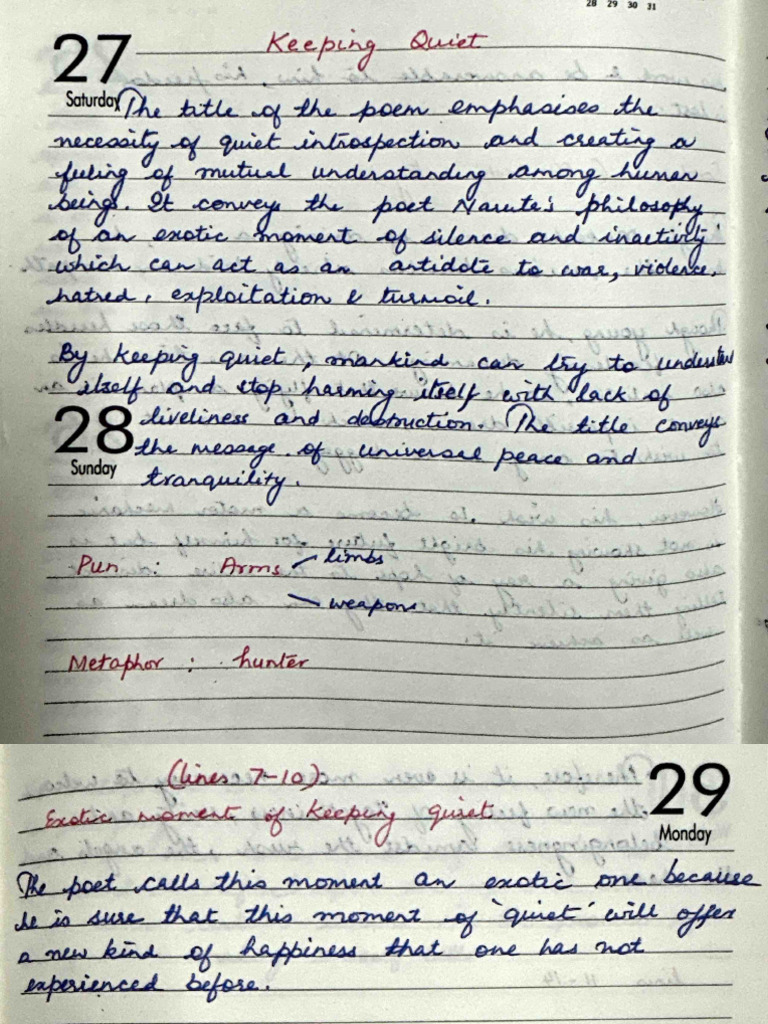 28 29 30 31
Keeping Quiet
27
Saturday
The title of the poem emphasises the
necessity of quiet introspection and creating a
feeling of mutual understanding among human
beings. It conveys the poet Narute's philosophy
of an exotic moment of silence and inactivity
which can act as an antidote to war, violence,
hatred, exploitation & turmoil.
By keeping quiet, mankind can try to understand
itself and stop harming itself with lack of
28
Sunday
liveliness and destruction. The title conveys
the message of universal peace and
tranquility.
Pun : Arms limbs
weapons
Metaphor : hunter
(lines 7-10)
29
Monday
Exotic moment of keeping quiet
The poet calls this moment an exotic one because
he is sure that this moment of 'quiet' will offer
a new kind of happiness that one has not
experienced before.